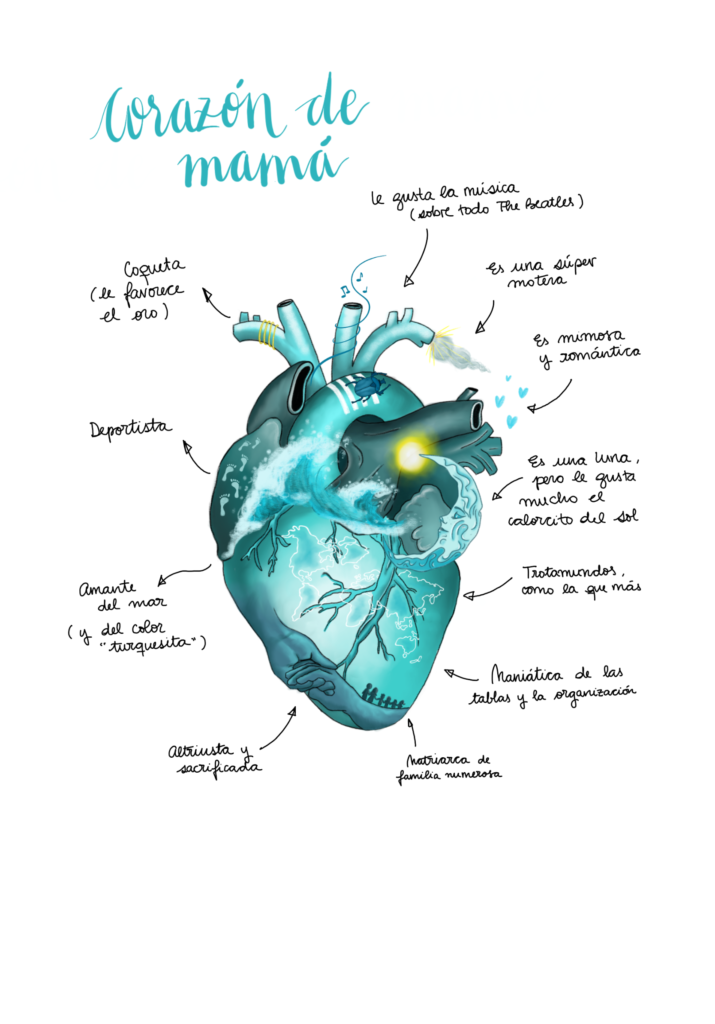 Corazón de
mamá
Le gusta la música
(sobre todo The Beatles)
Coqueta
(le favorece
el oro)
Es una súper
motera
Es mimosa
y romántica
Deportista
Es una luna,
pero le gusta
mucho el
calorcito del sol
Amante
del mar
(y del color
"turquesita")
Trotamundos,
como la que más
Maniática de las
tablas y la organización
Altruista y
sacrificada
Matriarca de
familia numerosa